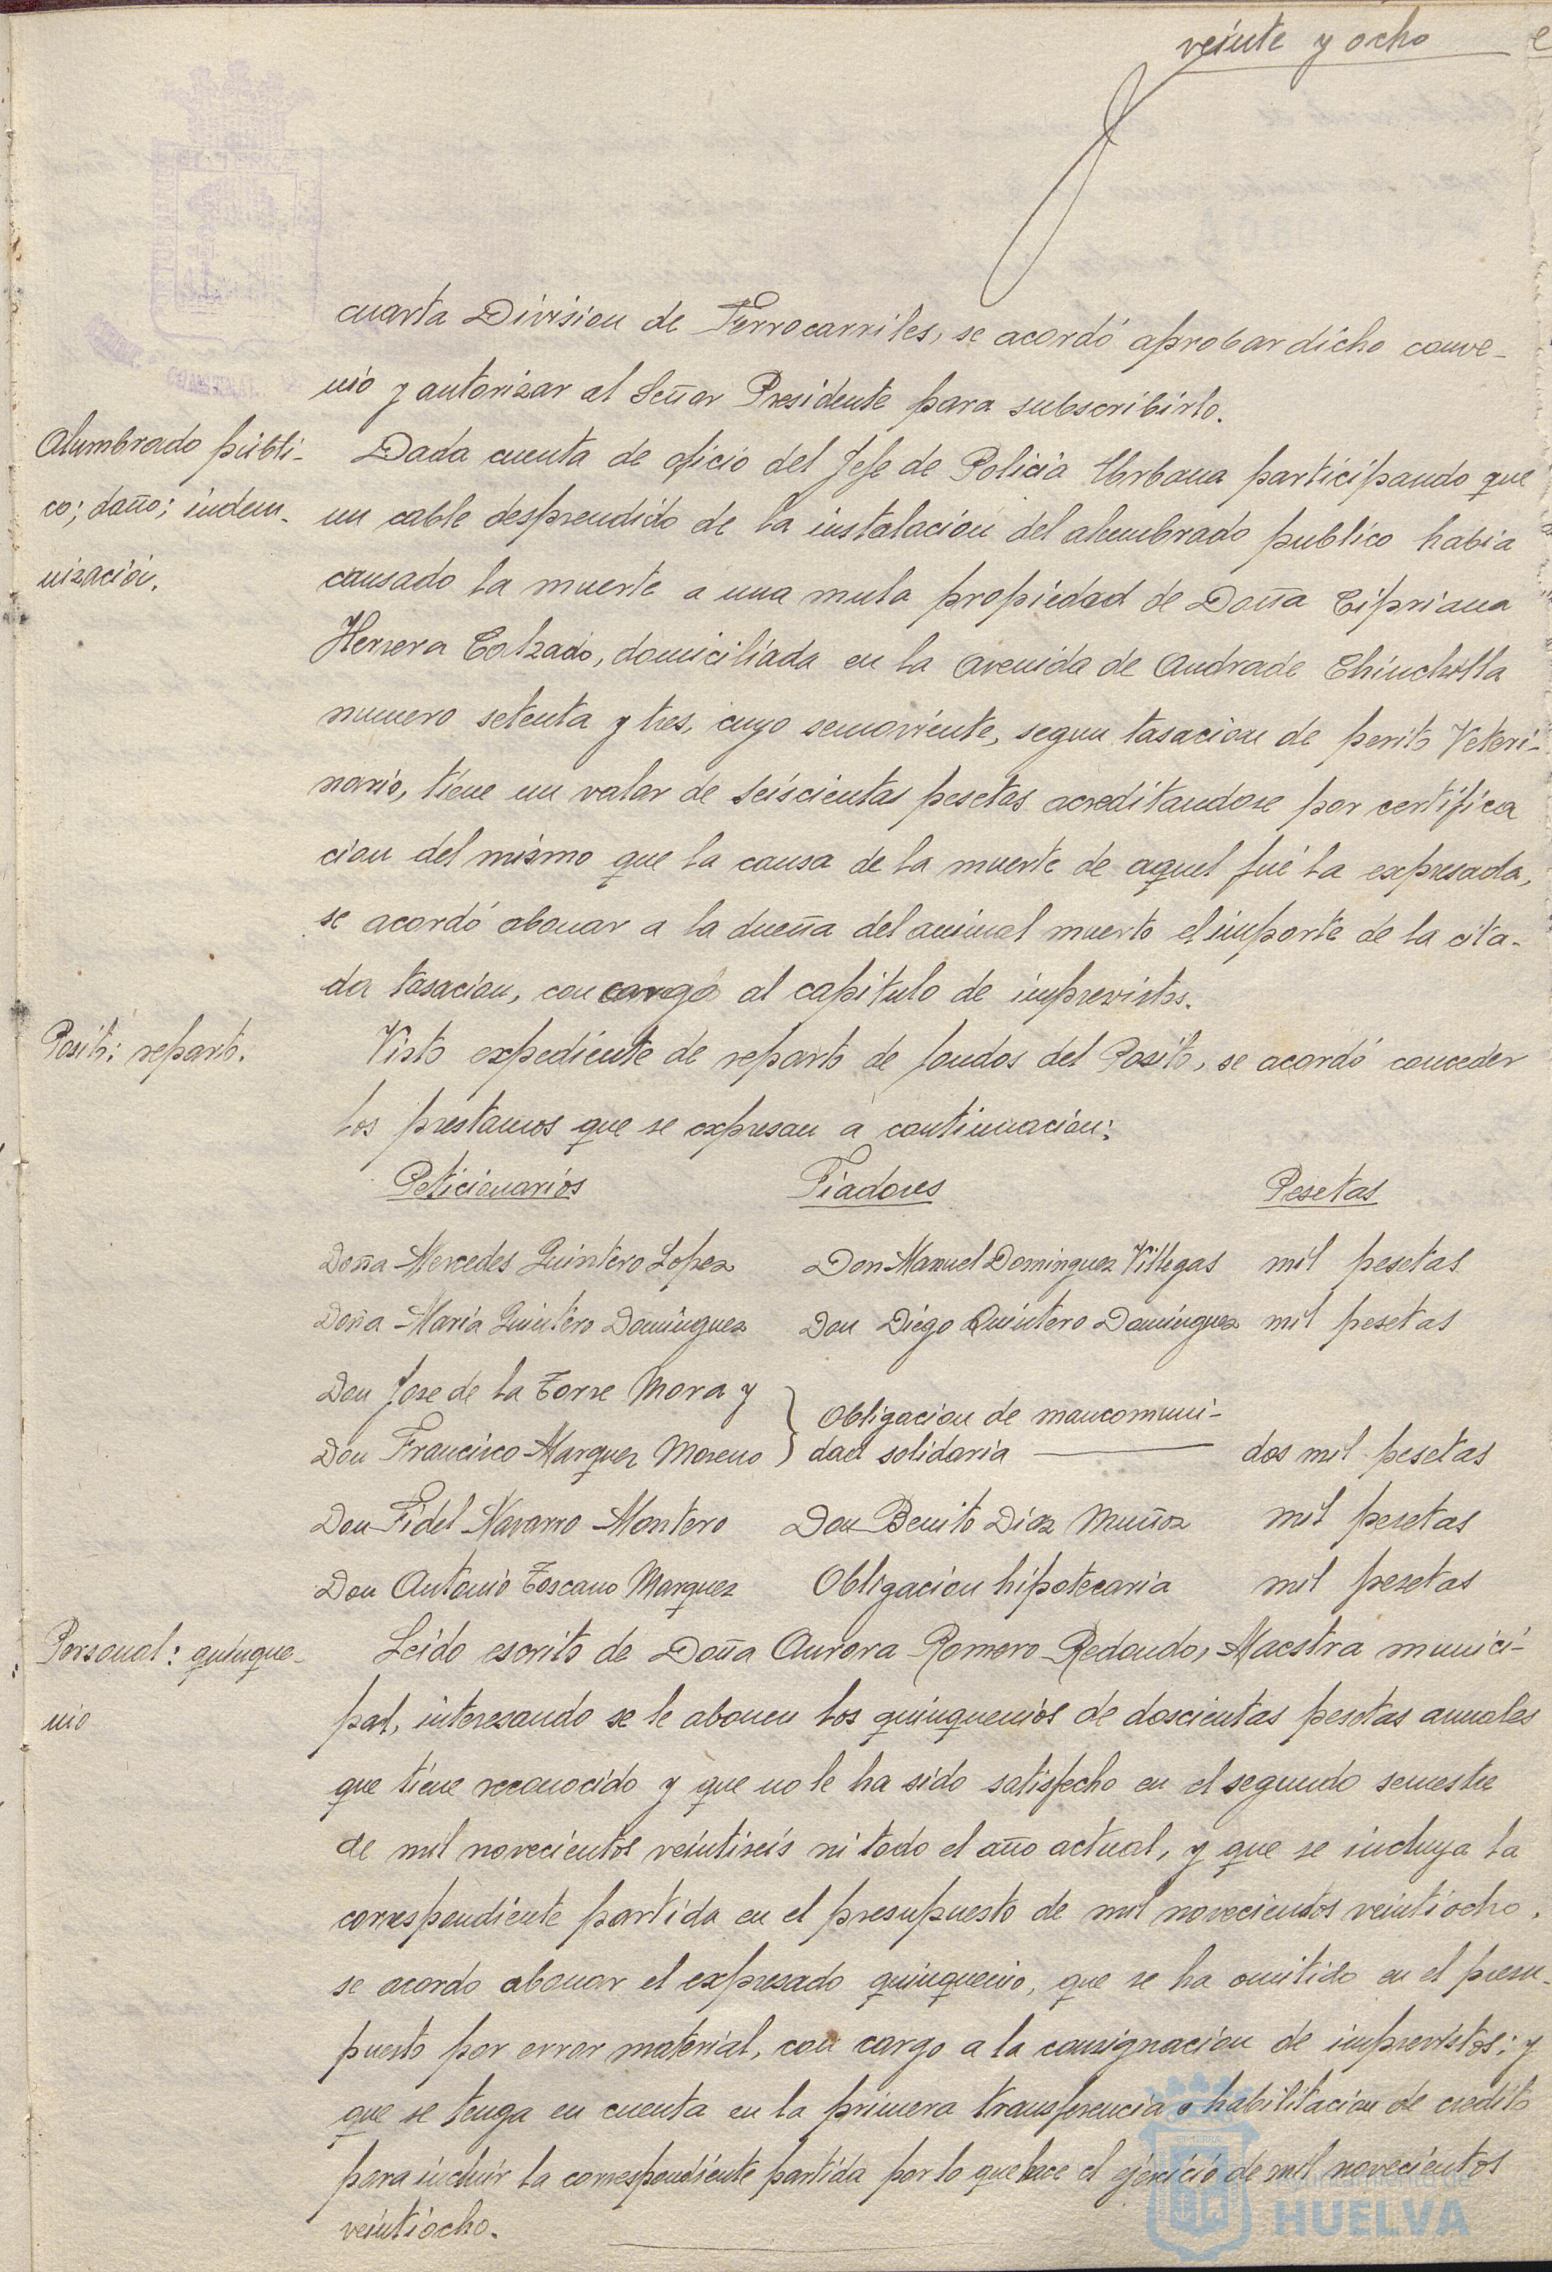 veinte y ocho
cuarta Division de Ferrocarriles, se acordó aprobar dicho conve-
nio y autorizar al Señor Presidente para subscribirlo.
Alumbrado públi-
co; daño; indem-
nización.
Dada cuenta de oficio del Jefe de Policia Urbana participando que
un cable desprendido de la instalacion del alumbrado publico habia
causado la muerte a una mula propiedad de Doña Cipriana
Herrera Calzado, domiciliada en la Avenida de Andrade Chinchilla
numero setenta y tres, cuyo semoviente, segun tasacion de perito Veteri-
nario, tiene un valor de seiscientas pesetas acreditandose por certifica
cion del mismo que la causa de la muerte de aquel fué la expresada,
se acordó abonar a la dueña del animal muerto el importe de la cita-
da tasacion, con cargo al capitulo de imprevistos.
Posito: reparto.
Visto expediente de reparto de fondos del Posito, se acordó conceder
los prestamos que se expresan a continuacion:
Peticionarios Fiadores Pesetas
Doña Mercedes Quintero Lopez Don Manuel Dominguez Villegas mil pesetas
Doña Maria Quintero Dominguez Don Diego Quintero Dominguez mil pesetas
Don Jose de la Torre Mora y
Don Francisco Marquez Moreno
Obligacion de mancomuni-
dad solidaria dos mil pesetas
Don Fidel Navarro Montero Don Benito Diaz Muñoz mil pesetas
Don Antonio Toscano Marquez Obligacion hipotecaria mil pesetas
Personal: quinque-
nio
Leido escrito de Doña Aurora Romero Redondo, Maestra munici-
pal, interesando se le abonen los quinquenios de doscientas pesetas anuales
que tiene reconocido y que no le ha sido satisfecho en el segundo semestre
de mil novecientos veintiseis ni todo el año actual, y que se incluya la
correspondiente partida en el presupuesto de mil novecientos veintiocho,
se acordo abonar el expresado quinquenio, que se ha omitido en el presu-
puesto por error material, con cargo a la consignacion de imprevistos; y
que se tenga en cuenta en la primera transferencia o habilitacion de credito
para incluir la correspondiente partida por lo que hace el ejercicio de mil novecientos
veintiocho.
Ayuntamiento de
HUELVA